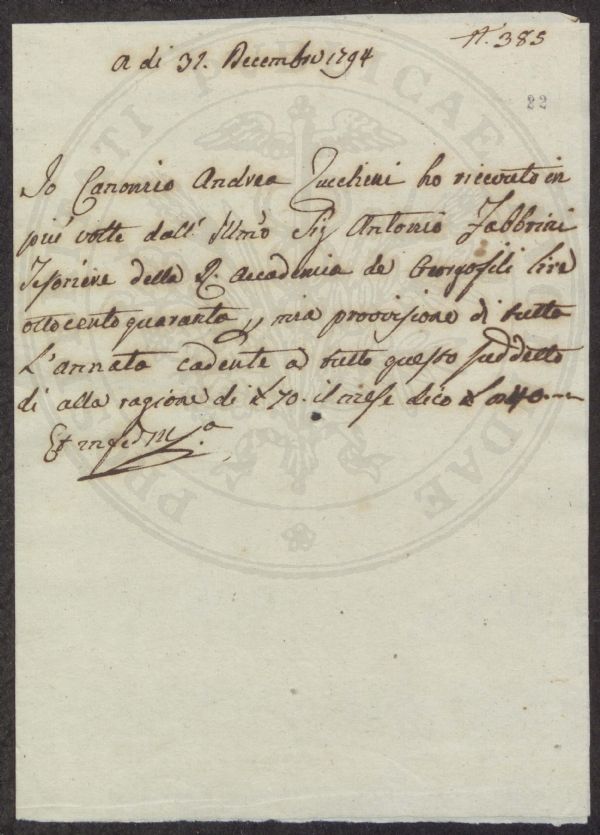 N. 385
A di 31. Decembre 1794
22
Io Canonico Andrea Zucchini ho ricevuto in
più volte dall' Illmo Sig Antonio Fabbrini
Tesoriere della R. Accademia de Georgofili lire
ottocento quaranta mia provvisione di tutta
L'annata cadente a tutto questo suddetto
di alla ragione di £ 70. il mese dico £ 840
PUBLICAE